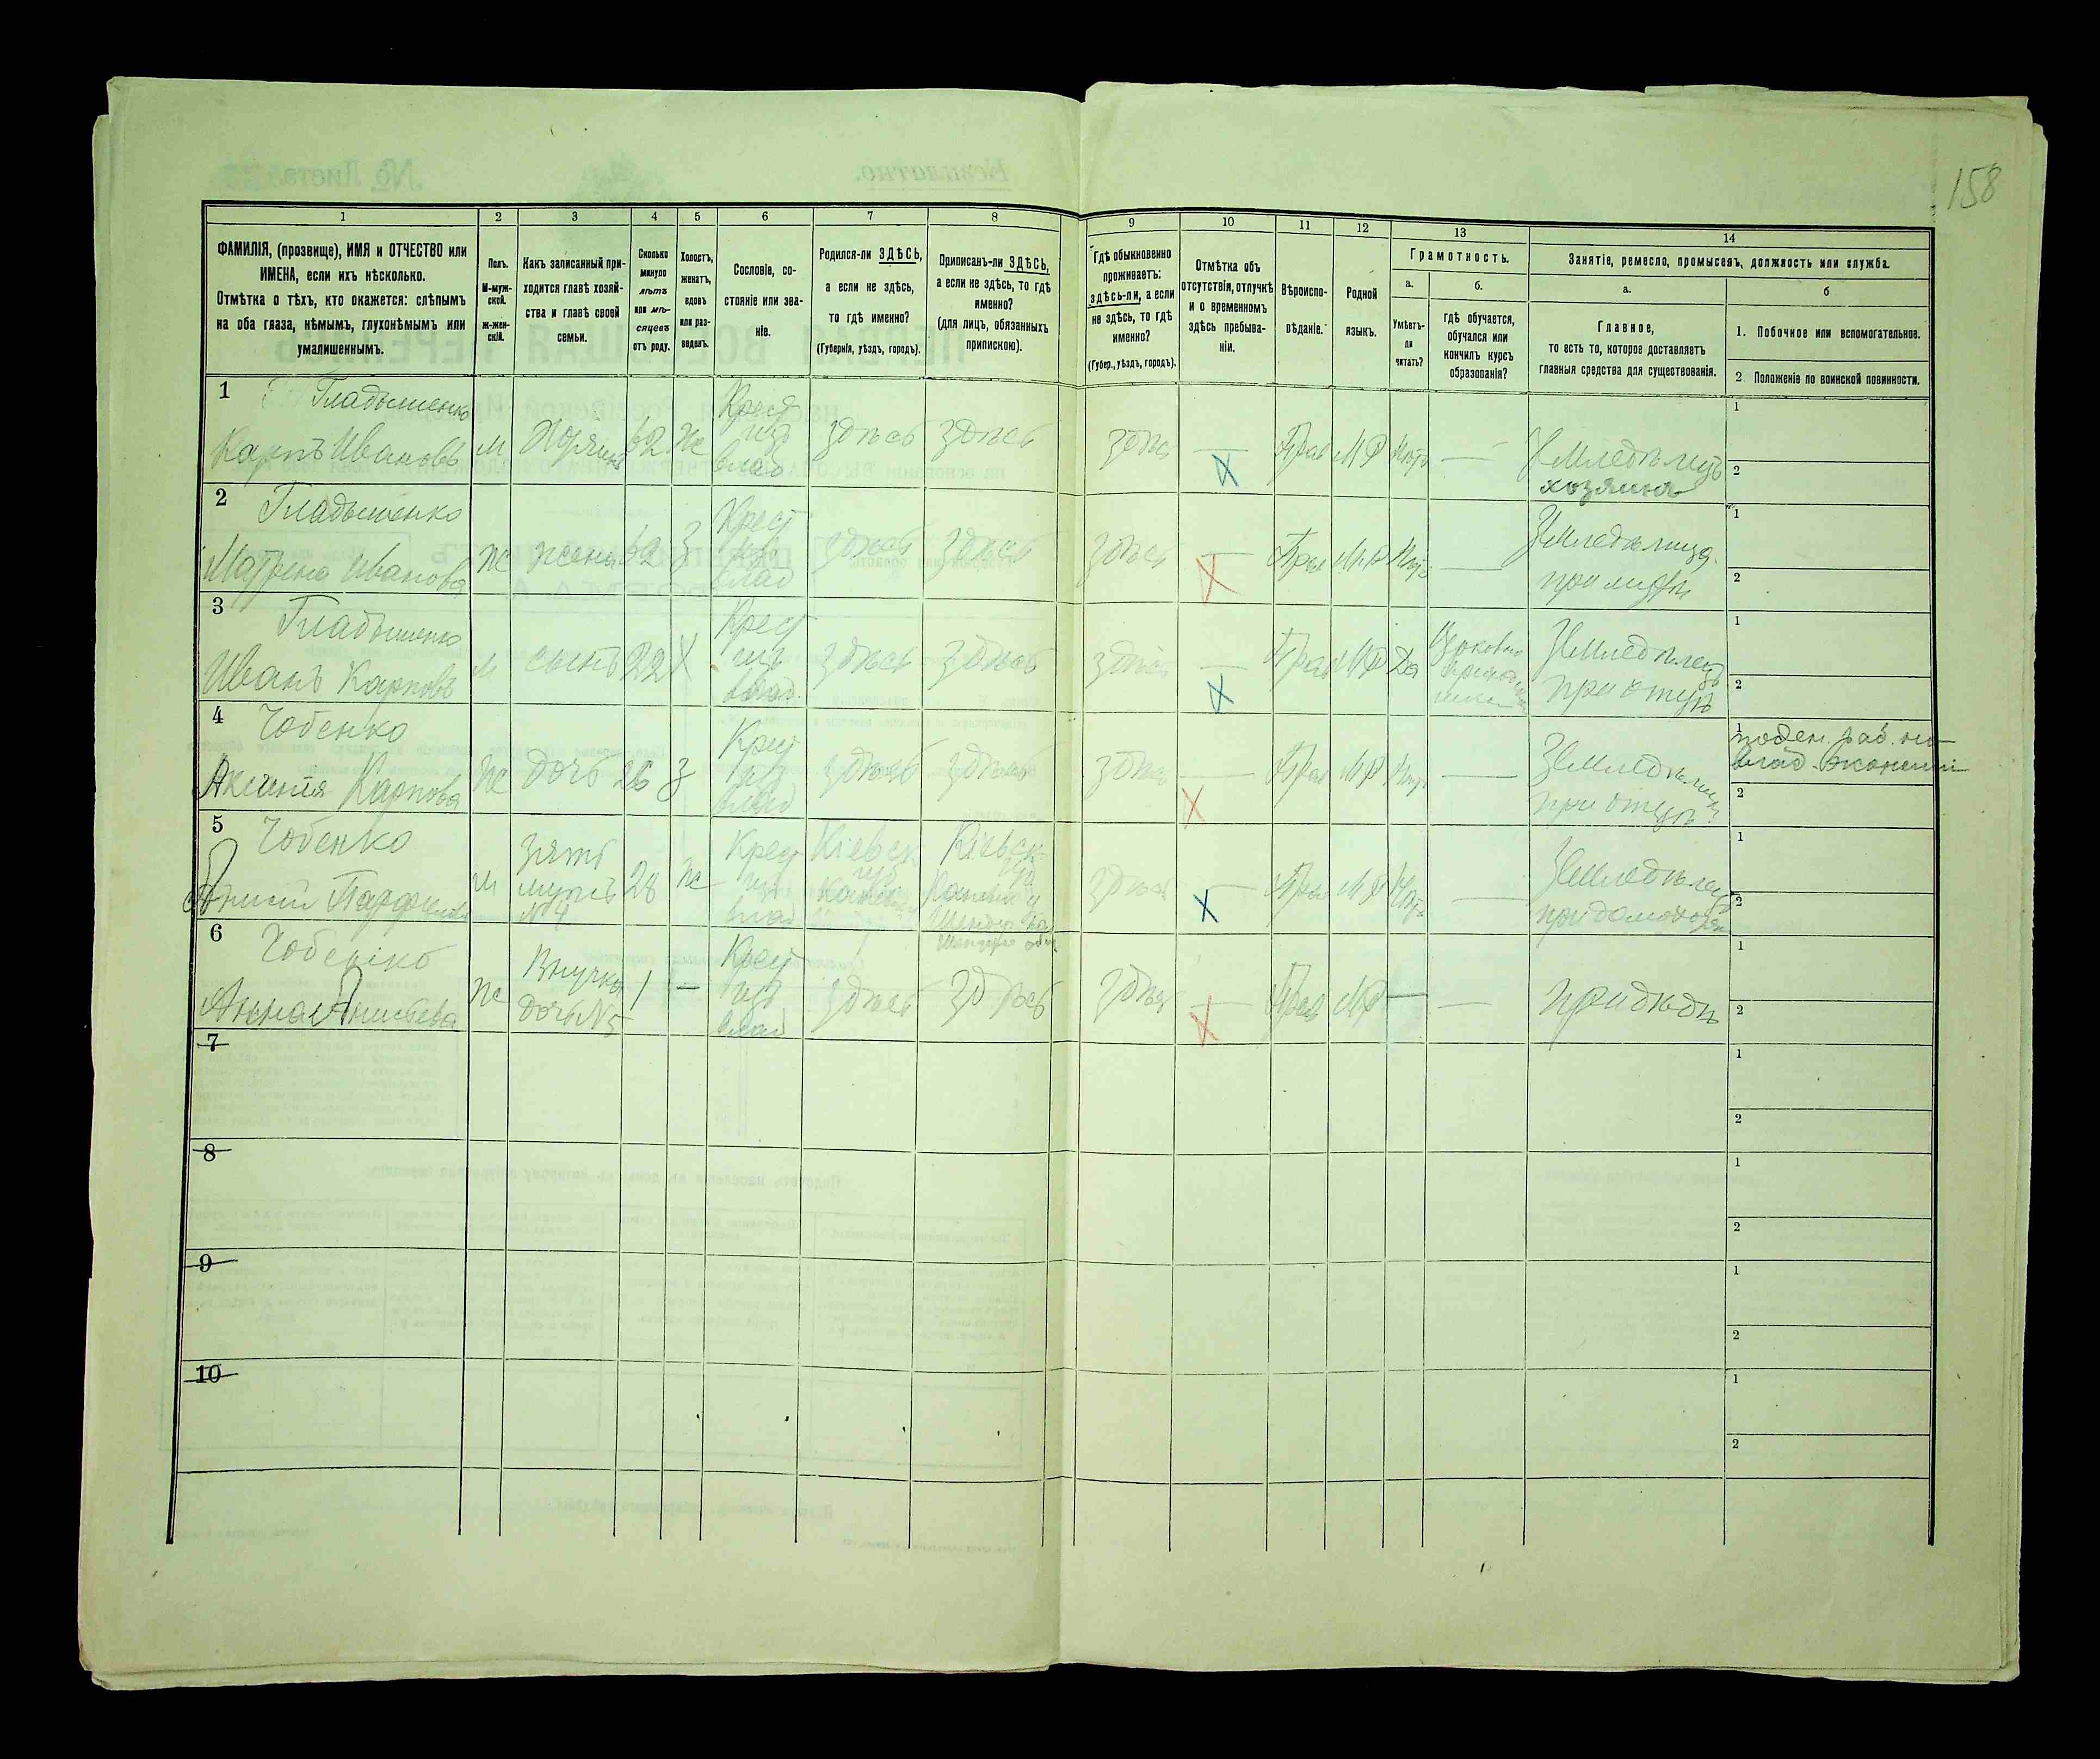 158
1 2 3 4 5 6 7 8 9 10 11 12 13 14
ФАМИЛІЯ, (прозвище), ИМЯ и ОТЧЕСТВО или
ИМЕНА, если ихъ нѣсколько.
Отмѣтка о тѣхъ, кто окажется: слѣпымъ
на оба глаза, нѣмымъ, глухонѣмымъ или
умалишеннымъ.
Полъ.
М-муж-
ской.
ж-жен-
скій.
Какъ записанный при-
ходится главѣ хозяй-
ства и главѣ своей
семьи.
Сколько
минуло
лѣтъ
или мѣ-
сяцевъ
отъ роду.
Холостъ,
женатъ,
вдовъ
или раз-
веденъ.
Сословіе, со-
стояніе или зва-
ніе.
Родился-ли ЗДѢСЬ,
а если не здѣсь,
то гдѣ именно?
(Губернія, уѣздъ, городъ).
Приписанъ-ли ЗДѢСЬ,
а если не здѣсь, то гдѣ
именно?
(для лицъ, обязанныхъ
припискою).
Гдѣ обыкновенно
проживаетъ:
здѣсь-ли, а если
не здѣсь, то гдѣ
именно?
(Губер., уѣздъ, городъ).
Отмѣтка объ
отсутствіи, отлучкѣ
и о временномъ
здѣсь пребыва-
ніи.
Вѣроиспо-
вѣданіе.
Родной
языкъ.
Грамотность.
а.
Умѣетъ-
ли
читать?
б.
гдѣ обучается,
обучался или
кончилъ курсъ
образованія?
Занятіе, ремесло, промыселъ, должность или служба.
а.
Главное,
то есть то, которое доставляетъ
главныя средства для существованія.
б
1. Побочное или вспомогательное.
2. Положеніе по воинской повинности.
1 Гладышенко
Карпъ Ивановъ м Хозяинъ 62 же Крест изъ влад здѣсь здѣсь здѣсь — Прав МР Нѣтъ — Земледѣлецъ
хозяинъ
1
2
2 Гладышенко
Матрена Иванова ж жена 62 З Крест изъ влад здѣсь здѣсь здѣсь — Прав МР Нѣтъ — Земледѣлица
при мужѣ
1
2
3 Гладышенко
Иванъ Карповъ м сынъ 22 Х Крест изъ влад. здѣсь здѣсь здѣсь — Прав МР Да Земледѣлецъ
при отцѣ
1
2
4 Чобенко
Аксинія Карпова ж дочь 26 З Крест изъ влад здѣсь здѣсь здѣсь — Прав МР Нѣтъ — Земледѣлица
при отцѣ
1 поден. раб. на
влад. экономіи
2
5 Чобенко
м зять
мужъ
№ 4
28 ж Крест изъ влад Кіевск Кіевск здѣсь — Прав МР Нѣтъ — Земледѣлецъ
1
2
6 Чобенко
Анна ж Внучка
дочь №5
1 — Крест изъ влад здѣсь здѣсь здѣсь — Прав МР — — при дѣдѣ
1
2
7
1
2
8
1
2
9
1
2
10
1
2